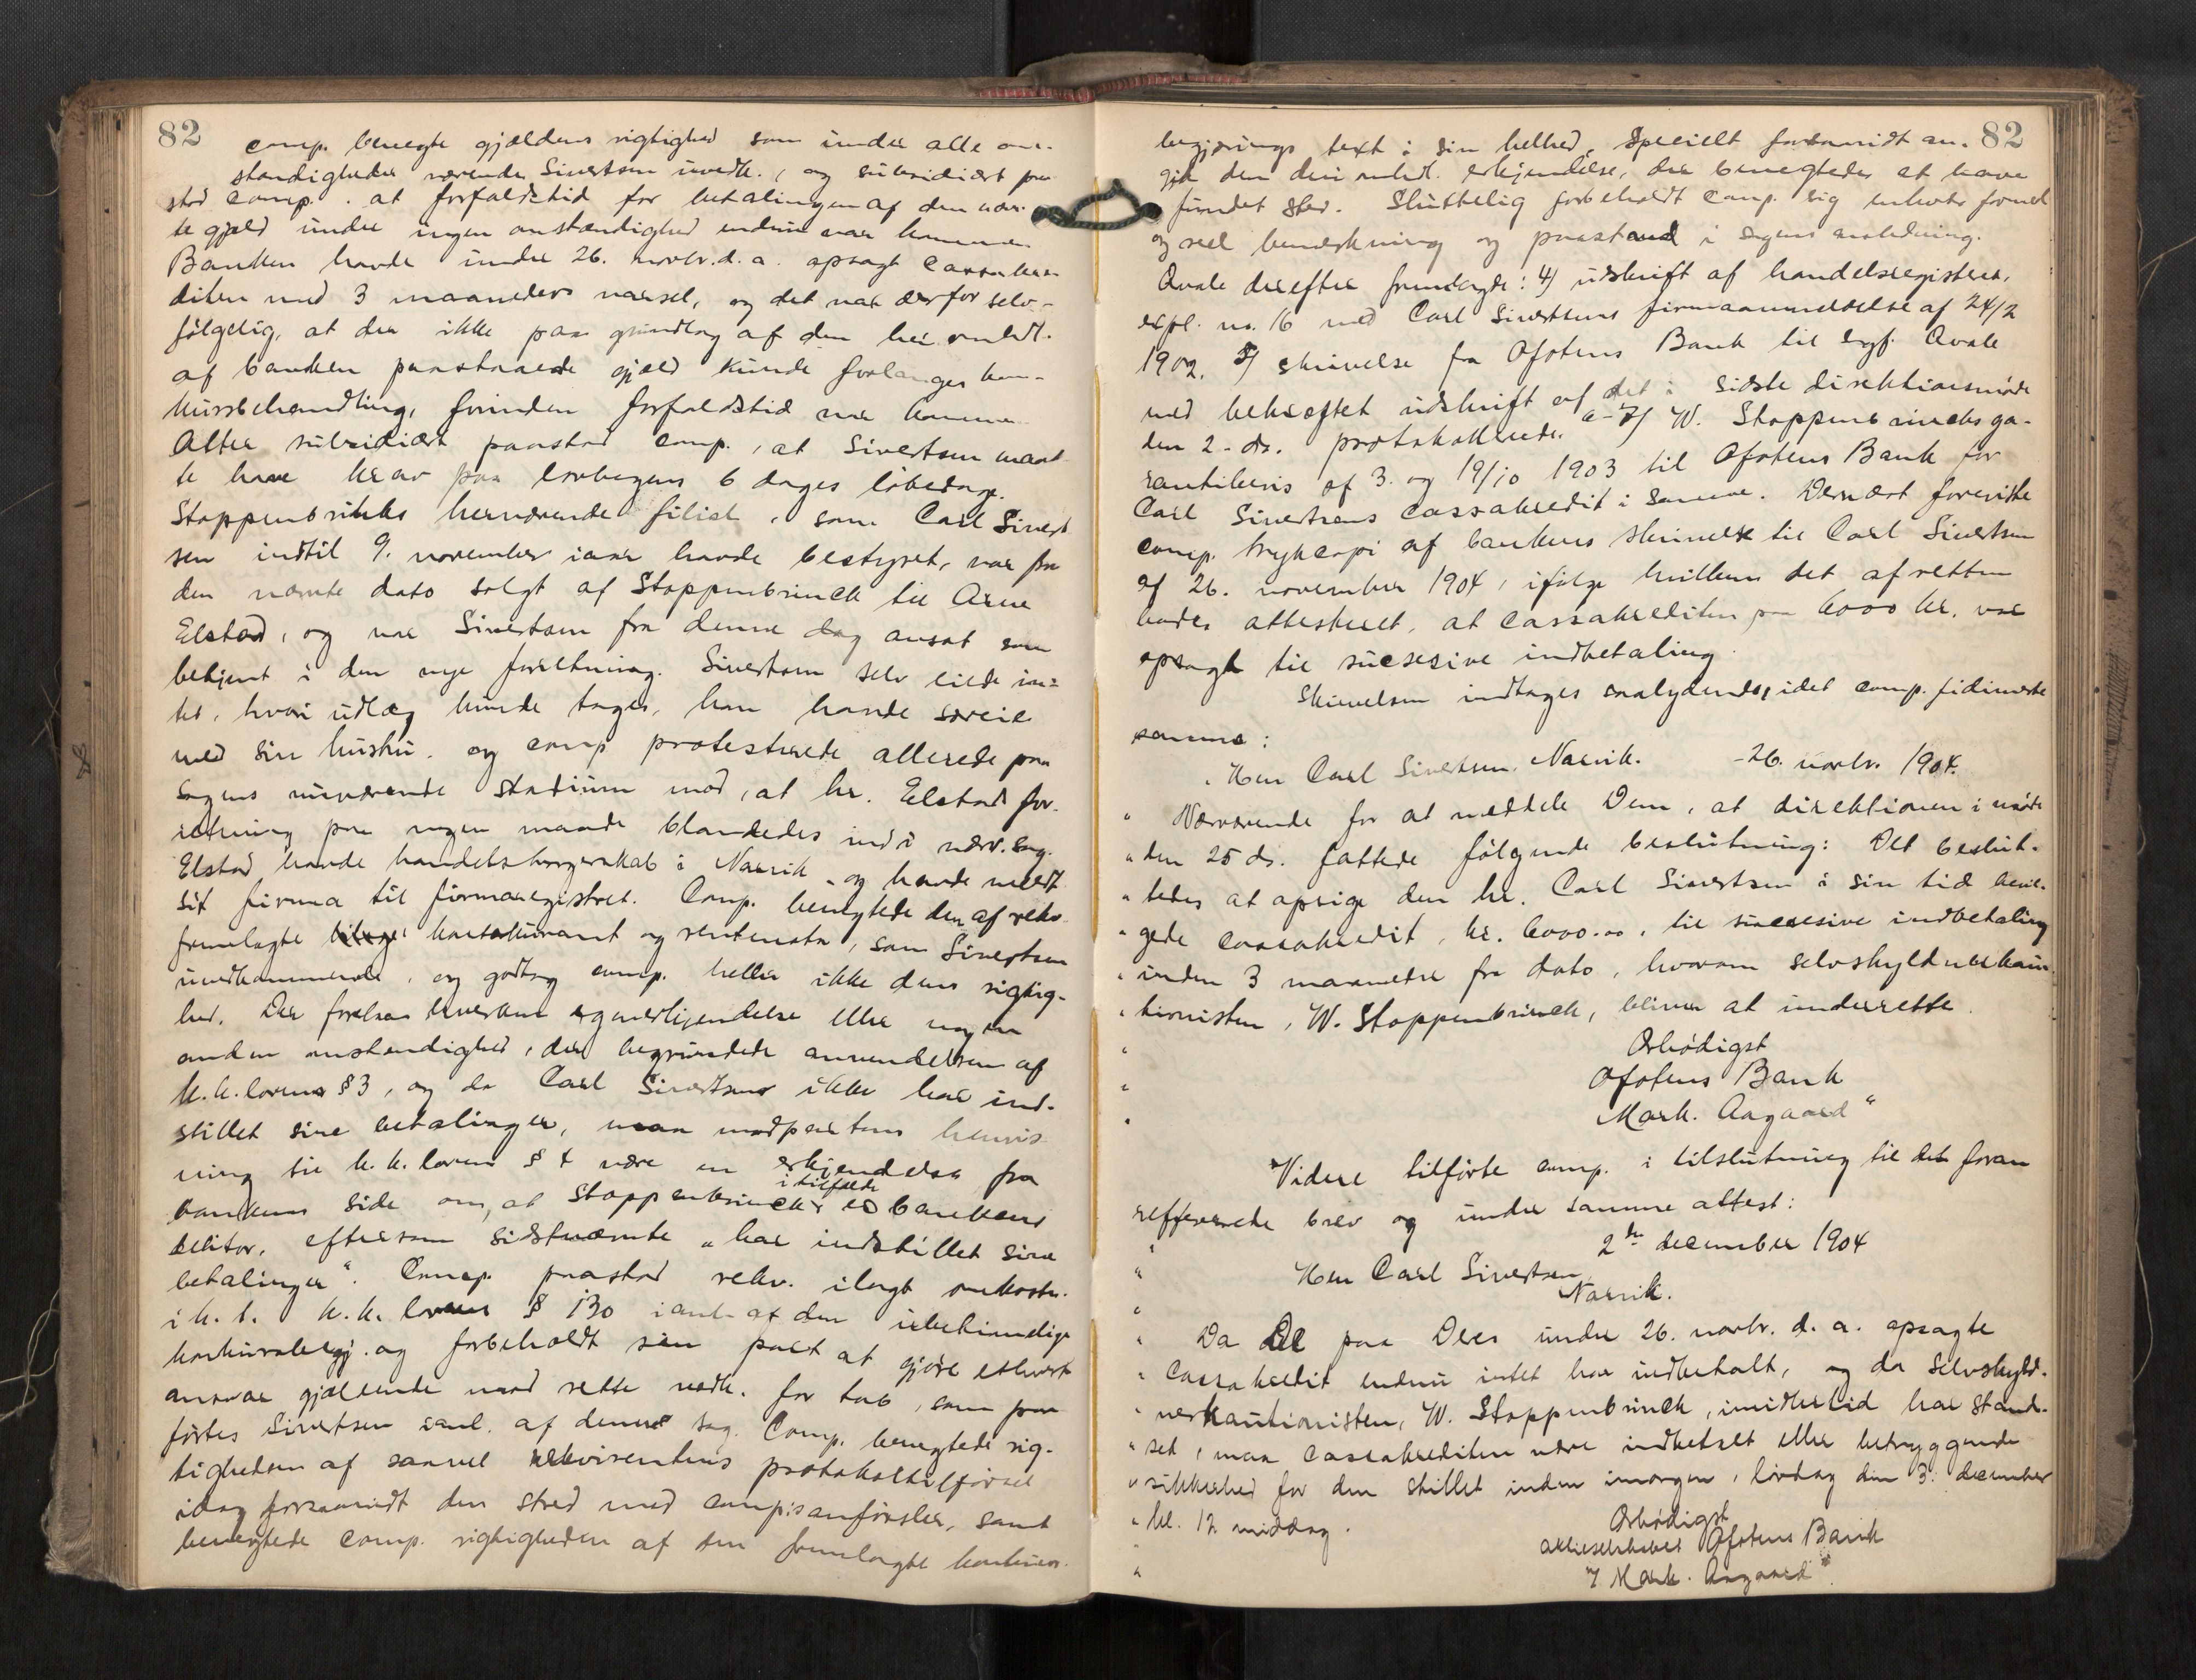 82
comp. benegte gjældens rigtighed som under alle om-
stændigheder værende Sivertsen uvedk., og subsidiært paa-
stod comp. at forfaldstid for betalingen af den
te gjæld under ingen omstændighed endnu var kommen
Banken havde under 26. novbr. d. a. opsagt Cassakre-
diten med 3 maaneders varsel, og det var derfor selv-
følgelig, at der ikke paa grundlag af den her omhdl.
af banken paastaaede gjæld kunde forlanges kon-
kursbehandling, forinden forfaldstid var kommen
Atter subsidiært paastod comp., at Sivertsen maat
te have krav paa lovbogens 6 dages løbedage.
Stoppenbrinks herværende filial, som Carl Sivert
sen indtil 9. november iaar havde bestyret, var fra
den nævnte dato solgt af Stoppenbrinck til Arne
Elstad, og var Sivertsen fra denne dag ansat som
betjent i den nye forretning. Sivertsen selv eiede in-
tet, hvori udlæg kunde tages, han havde særeie
med sin hustru. og comp protesterede allerede paa
sagens nuværende stadium mod, at hr. Elstads for-
retning paa nogen maade blandedes ind i nærv. sag.
Elstad havde handelsborgerskab i Narvik og havde meldt
sit firma til firmaregistret. Comp. benegtede den af rekv.
fremlagte kontokurant og rentenota, som Sivertsen
uvedkommende, og godtog comp. heller ikke dens rigtig-
hed. Der forelaa hverken egenerkjendelse eller nogen
anden omstændighed, der begrundede anvendelsen af
k.k.lovens § 3, og da Carl Sivertsen ikke har ind-
stillet sine betalinger, maa modpartens henvis
ning til k.k.loven § 4 være en erkjendelse fra
bankens side om, at Stoppenbrinck i tilfælde er bankens
debitor, eftersom sidstnævnte „har indstillet sine
betalinger“. Comp. paastod rekv. ilagt omkostn.
i h. t. k.k. loven § 130 i anl. af den ubetimelige
konkursbegj. og forbeholdt sin part at gjøre ethvert
ansvar gjældende mod rette vedk. for tab, som paa
førtes Sivertsen i anl. af denne sag. Comp. benegtede rig-
tigheden af saavel rekvirentens protokoltilførsel
idag forsaavidt den stred med comp:s anførsler, samt
benegtede comp. rigtigheden af den fremlagte konkurs-
82
begjærings text i sin helhed, specielt forsaavidt an-
gik den deri omhdl. erkjendelse, der benegtedes at have
fundet sted. Sluttelig forbeholdt comp. sig enhver formel
og reel bemærkning og paastand i sagens anledning.
Qvale derefter fremlagde: 4) udskrift af handelsregisteret,
expl. no. 16 med Carl Sivertsens firmaanmeldelse af 24/2
1902. 5) skrivelse fra Ofotens Bank til sagf. Qvale
med bekræftet udskrift af det i sidste direktionsmøde
den 2. ds. protokollerede. 6-7) W. Stoppenbrincks ga-
rantibevis af 3. og 19/10 1903 til Ofotens Bank for
Carl Sivertsens Cassakredit i samme. Dernæst foreviste
comp. trykcopi af bankens skrivelse til Carl Sivertsen
af 26. november 1904, ifølge hvilken det af retten
bedes attesteret, at cassakrediten paa 6000 kr. var
opsagt til sucsesive indbetaling.
Skrivelsen indtages saalydende, idet comp. fidimerte
samme:
„Herr Carl Sivertsen, Narvik. - 26. novbr. 1904.
„ Nærværende for at meddele Dem, at direktionen i møde
„ den 25 ds. fattede følgende beslutning: Det beslut-
„ tedes at opsige den hr. Carl Sivertsen i sin tid bevil-
„ gede cassakredit, kr. 6000.00, til sucsesive indbetaling
„ inden 3 maaneder fra dato, hvorom selvskyldnerkau-
„ tionisten, W. Stoppenbrinck, bliver at underrette.
„ Ærbødigst
„ Ofotens Bank
„ Mark. Aagaard“
Videre tilførte comp. i tilslutning til det foran
reffererede brev og under samme attest:
„ 2den december 1904
„ Herr Carl Sivertsen
„ Narvik.
„ Da De paa Deres under 26. novbr. d. a. opsagte
„ Cassakredit endnu intet har indbetalt, og da selvskyld-
„ nerkautionisten, W. Stoppenbrinck, imidlertid har stand-
„ set, maa Cassakrediten være indbetalt eller betryggende
„ sikkerhed for den stillet inden imorgen, lørdag den 3. december
„ kl. 12 middag.
„ Ærbødigst
aktieselskabet Ofotens Bank
„ Mark. Aagaard“